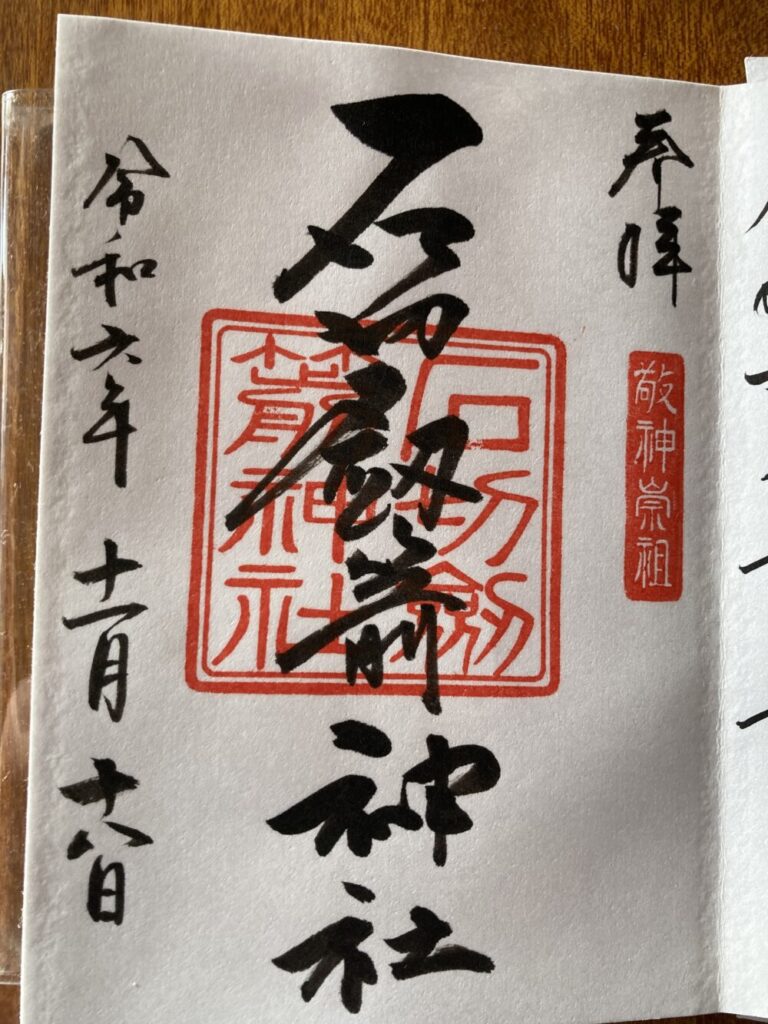 奉拝
敬神崇祖
石切劔箭神社
石切劔
箭神社
令和六年十一月十八日